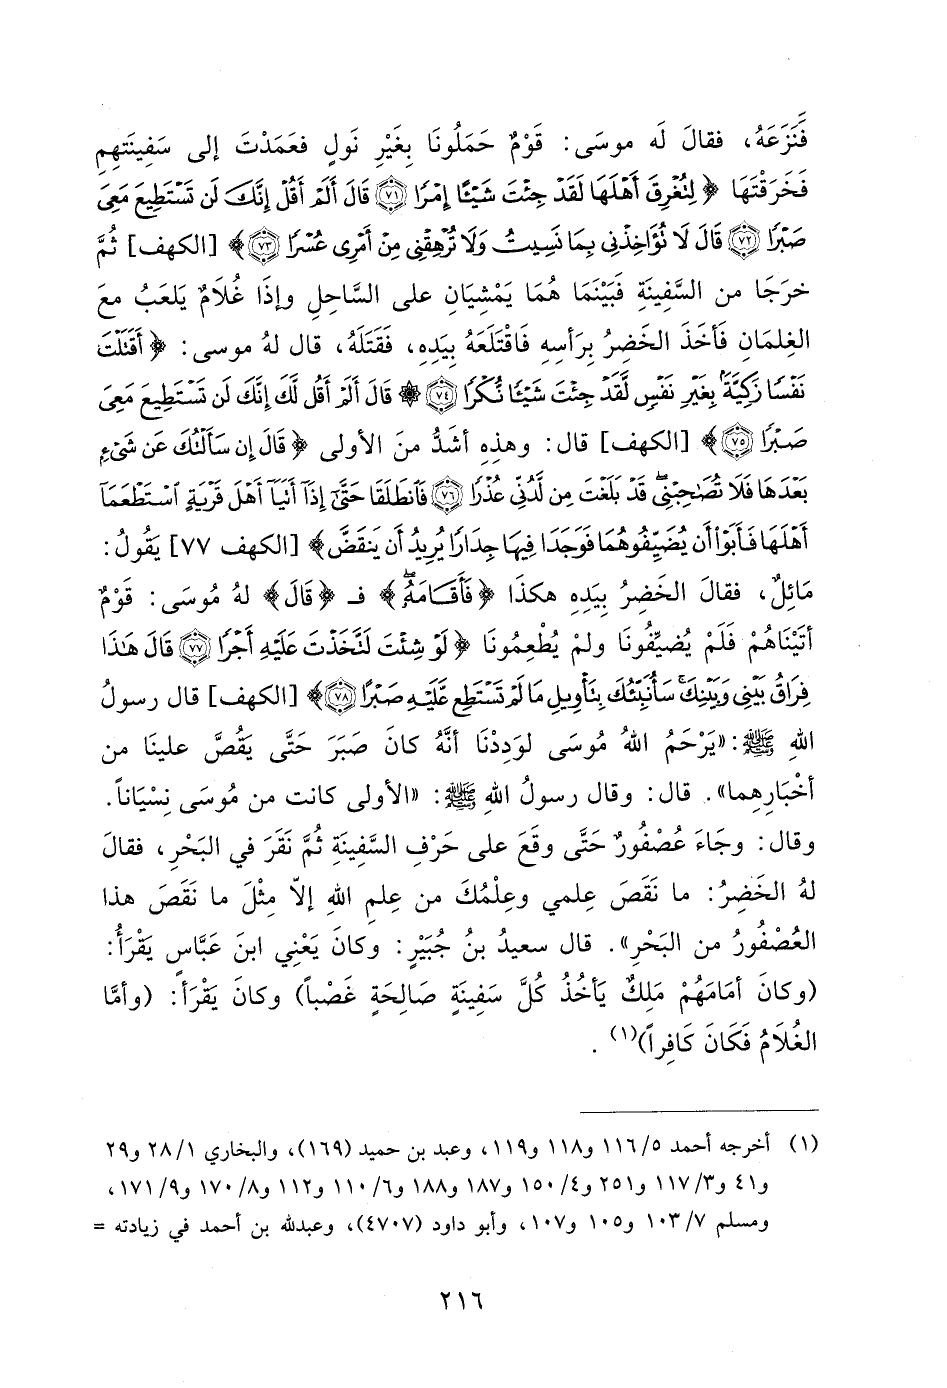 فَنَزَعَهُ، فقالَ لَه موسَى: قَوْمٌ حَمَلُونَا بِغَيْرِ نَولٍ فعَمَدْتَ إلى سَفِينَتهِم
فَخَرَقْتَهَا ﴿ لِتُغْرِقَ أَهْلَهَا لَقَدْ جِئْتَ شَيْئًا إِمْرًا ﴿٧١﴾ قَالَ أَلَمْ أَقُلْ إِنَّكَ لَن تَسْتَطِيعَ مَعِىَ
صَبْرًا ﴿٧٢﴾ قَالَ لَا تُؤَاخِذْنِى بِمَا نَسِيتُ وَلَا تُرْهِقْنِى مِنْ أَمْرِى عُسْرًا ﴿٧٣﴾ ﴾ [الكهف] ثُمَّ
خرَجَا من السَّفِينَةِ فَبَيْنَمَا هُمَا يَمْشِيَانِ على السَّاحِلِ وإذَا غُلَامٌ يَلعَبُ معَ
الغِلمَانِ فَأخَذَ الخَضِرُ بِرَأسِهِ فَاقْتَلَعَهُ بِيَدِهِ، فَقَتَلَهُ، قال لهُ موسى: ﴿ أَقَتَلْتَ
نَفْسًا زَكِيَّةًۢ بِغَيْرِ نَفْسٍ لَّقَدْ جِئْتَ شَيْئًا نُّكْرًا ﴿٧٤﴾ ۞ قَالَ أَلَمْ أَقُل لَّكَ إِنَّكَ لَن تَسْتَطِيعَ مَعِىَ
صَبْرًا ﴿٧٥﴾ ﴾ [الكهف] قال: وهذِهِ أشَدُّ منَ الأولى ﴿ قَالَ إِن سَأَلْتُكَ عَن شَىْءٍ
بَعْدَهَا فَلَا تُصَٰحِبْنِى ۖ قَدْ بَلَغْتَ مِن لَّدُنِّى عُذْرًا ﴿٧٦﴾ فَٱنطَلَقَا حَتَّىٰٓ إِذَآ أَتَيَآ أَهْلَ قَرْيَةٍ ٱسْتَطْعَمَآ
أَهْلَهَا فَأَبَوْا۟ أَن يُضَيِّفُوهُمَا فَوَجَدَا فِيهَا جِدَارًا يُرِيدُ أَن يَنقَضَّ ﴾ [الكهف ٧٧] يَقُولُ:
مَائِلٌ، فقالَ الخَضِرُ بِيَدِهِ هكذَا ﴿ فَأَقَامَهُۥ ۖ ﴾ فـ ﴿ قَالَ ﴾ لهُ مُوسَى: قَوْمٌ
أتَيْنَاهُمْ فَلَمْ يُضيِّفُونَا ولمْ يُطْعِمُونَا ﴿ لَوْ شِئْتَ لَتَّخَذْتَ عَلَيْهِ أَجْرًا ﴿٧٧﴾ قَالَ هَٰذَا
فِرَاقُ بَيْنِى وَبَيْنِكَ ۚ سَأُنَبِّئُكَ بِتَأْوِيلِ مَا لَمْ تَسْتَطِع عَّلَيْهِ صَبْرًا ﴿٧٨﴾ ﴾ [الكهف] قال رسولُ
اللهِ ﷺ: «يَرْحَمُ اللهُ مُوسَى لوَدِدْنَا أنَّهُ كانَ صَبَرَ حَتَّى يَقُصَّ علينَا من
أخْبَارِهِما». قال: وقال رسولُ اللهِ ﷺ: «الأولى كانت من مُوسَى نِسْيَاناً.
وقال: وجَاءَ عُصْفُورٌ حَتَّى وقَعَ على حَرْفِ السَّفِينَةِ ثُمَّ نَقَرَ في البَحْرِ، فقالَ
لهُ الخَضِرُ: ما نَقَصَ عِلمي وعِلْمُكَ من عِلمِ اللهِ إلاّ مِثْلَ ما نَقَصَ هذا
العُصْفُورُ من البَحْرِ». قال سعيدُ بنُ جُبَيْرٍ: وكانَ يَعْنِي ابنَ عَبَّاسٍ يَقْرَأُ:
(وكانَ أمَامَهُمْ مَلِكٌ يَأخُذُ كُلَّ سَفِينَةٍ صَالِحَةٍ غَصْباً) وكانَ يَقْرَأ: (وأمَّا
الغُلَامُ فَكَانَ كَافِراً)(١).
(١) أخرجه أحمد ٥/ ١١٦ و١١٨ و١١٩، وعبد بن حميد (١٦٩)، والبخاري ١/ ٢٨ و٢٩
و٤١ و٣/ ١١٧ و٢٥١ و٤/ ١٥٠ و١٨٧ و١٨٨ و٦/ ١١٠ و١١٢ و٨/ ١٧٠ و٩/ ١٧١،
ومسلم ٧/ ١٠٣ و١٠٥ و١٠٧، وأبو داود (٤٧٠٧)، وعبدالله بن أحمد في زيادته =
٢١٦